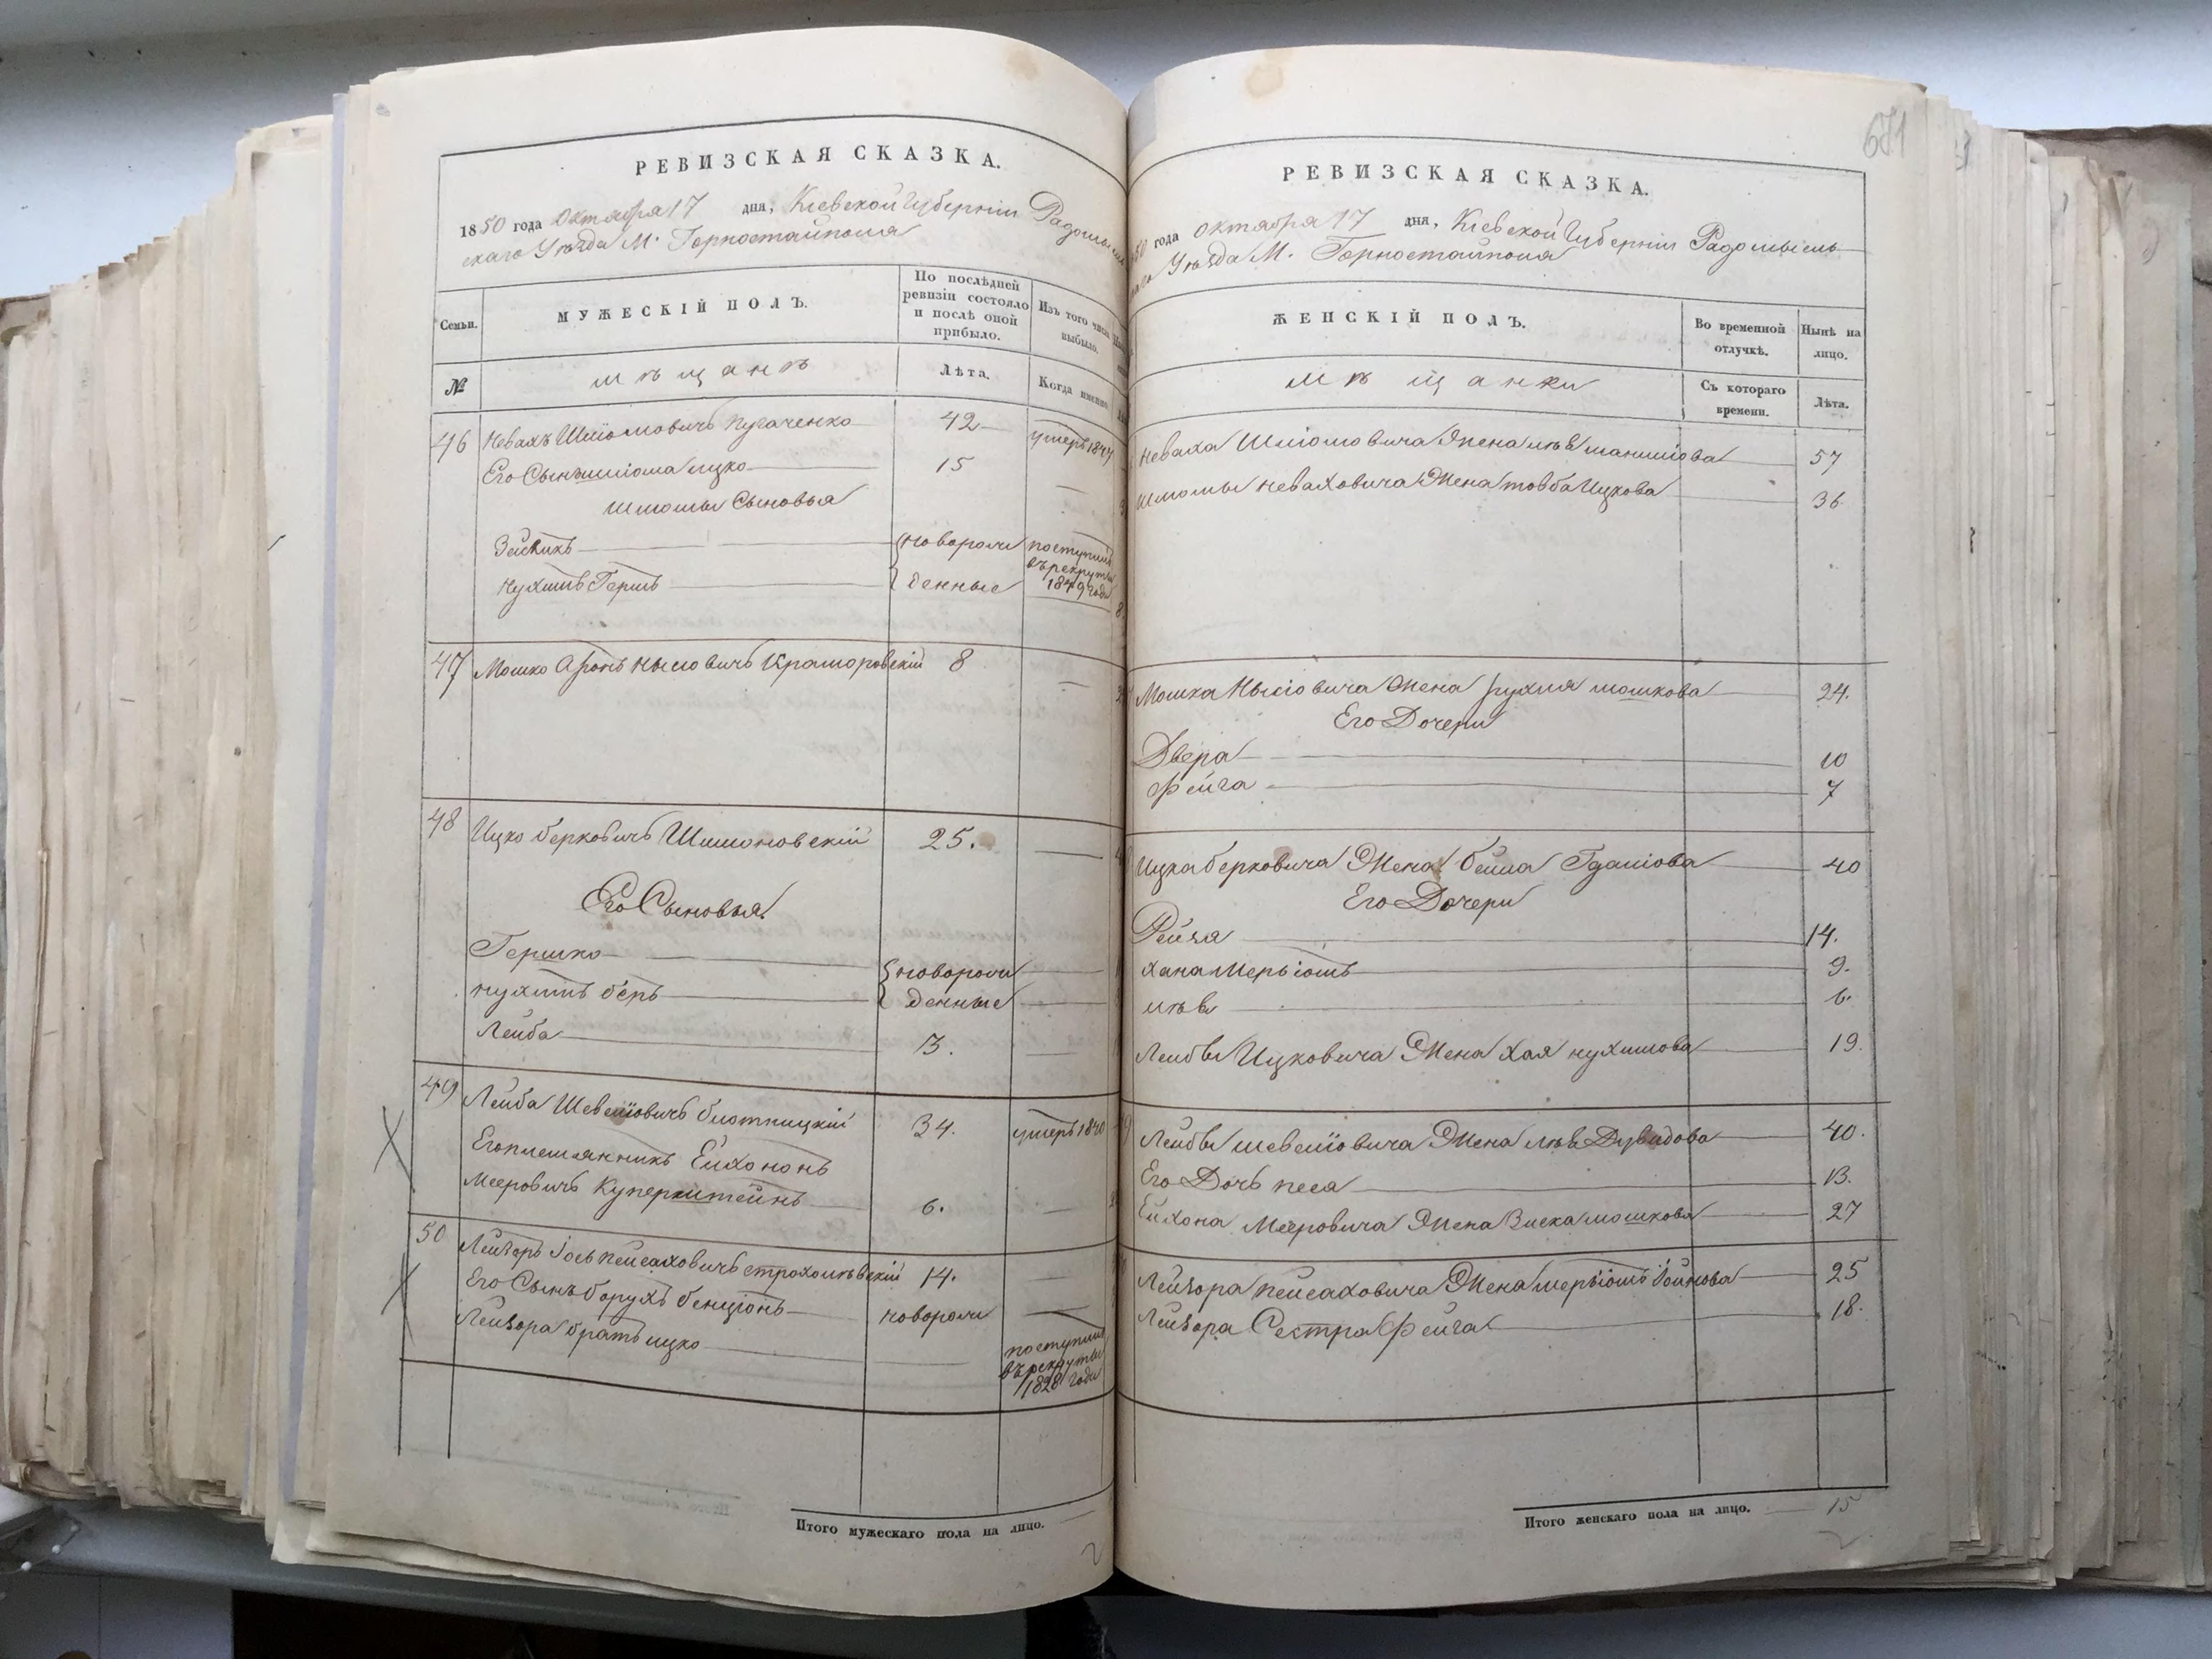 РЕВИЗСКАЯ СКАЗКА.
1850 года Октября 17 дня, Кіевской Губерніи Радомысль
скаго Уѣзда М. Горностайполя
Семьи.
МУЖЕСКІЙ ПОЛЪ.
По послѣдней ревизіи состояло и послѣ оной прибыло.
Изъ того числа выбыло.
№
мѣщанѣ
Лѣта.
Когда именно
46 Невахъ Шліомовичъ Пугаченко 42 умеръ 1847
Его Сынъ шліома ицко 15 —
Шлиомы Сыновья
Зейликъ новорож поступилъ
въ рекруты
Нухимъ Гершъ денные 1849 года 8
47 Мошко Аронъ Нысіовичъ Краморовскій 8 —
48 Ицко берковичъ Шимоновскій 25. —
Его Сыновья
Гершко новорож —
нухимъ беръ денные —
Лейба 13. —
49 Лейба Шевеліовичъ блотницкій 34. умеръ 1840
Его племянникъ Елхононъ
Мееровичъ Куперштейнъ 6. —
50 Лейзоръ Іось пейсаховичъ строхолѣвскій 14. —
Его Сынъ борухъ бенціонъ новорож —
Лейзора братъ ицко — поступилъ
въ рекруты
1828 года
Итого мужескаго пола на лицо.
2
671
РЕВИЗСКАЯ СКАЗКА.
50 года октября 17 дня, Кіевской Губерніи Радомысль
Уѣзда М. Горностайполя
ЖЕНСКІЙ ПОЛЪ.
Во временной отлучкѣ.
Нынѣ на лицо.
мѣщанки
Съ котораго времени.
Лѣта.
Неваха Шліомовича Жена лѣя маншіова 57
Шлиомы Неваховича Жена товба Ицкова 36
Мошка Нысіовича Жена рухля мошкова 24.
Его Дочери
Двера 10
Фейга 7
Ицка берковича Жена бейла Гдаліова 40
Его Дочери
Рейзя 14.
хана Мерьіомъ 9.
лѣя 6.
Лейбы Ицковича Жена хая нухимова 19.
Лейбы шевеліовича Жена лѣя Дувидова 40.
Его Дочь песя 13.
Елхона Мееровича Жена Зиска мошкова 27
Лейзора пейсаховича Жена мерьіомъ Войнова 25
Лейзора Сестра Фейга 18.
Итого женскаго пола на лицо. — 15
2